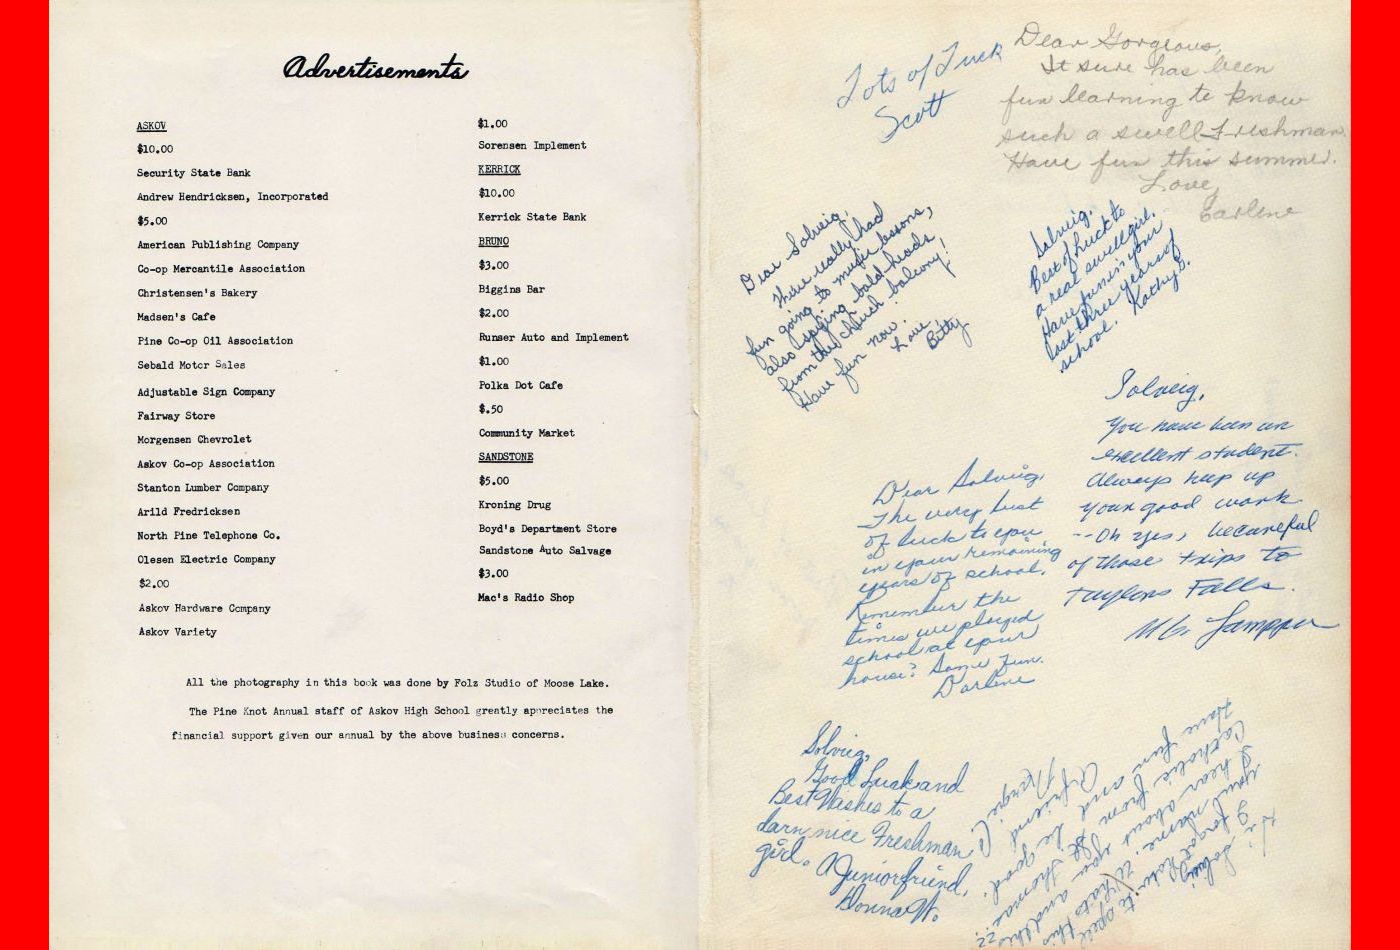 Advertisements
ASKOV
$10.00
Security State Bank
Andrew Hendricksen, Incorporated
$5.00
American Publishing Company
Co-op Mercantile Association
Christensen's Bakery
Madsen's Cafe
Pine Co-op Oil Association
Sebald Motor Sales
Adjustable Sign Company
Fairway Store
Morgensen Chevrolet
Askov Co-op Association
Stanton Lumber Company
Arild Fredricksen
North Pine Telephone Co.
Olesen Electric Company
$2.00
Askov Hardware Company
Askov Variety
$1.00
Sorensen Implement
KERRICK
$10.00
Kerrick State Bank
BRUNO
$3.00
Biggins Bar
$2.00
Runser Auto and Implement
$1.00
Polka Dot Cafe
$.50
Community Market
SANDSTONE
$5.00
Kroning Drug
Boyd's Department Store
Sandstone Auto Salvage
$3.00
Mac's Radio Shop
All the photography in this book was done by Folz Studio of Moose Lake.
The Pine Knot Annual staff of Askov High School greatly appreciates the
financial support given our annual by the above business concerns.
Lots of Luck
Scott
Dear Gorgeous,
It sure has been
fun learning to know
such a swell Freshman.
Have fun this summer.
Love,
Earlene
Dear Solveig,
We've really had
fun going to music lessons,
also spying bald heads
from the church balcony!
Have fun now.
Love
Betty
Solveig,
Best of luck to
a real swell girl.
Have fun in your
last three years of
school. Kathy B.
Solveig,
You have been an
excellent student.
Always keep up
your good work
--Oh yes, be careful
of those trips to
Taylors Falls.
Dear Solveig,
The very best
of luck to you
in your remaining
years of school.
Remember the
times we played
school at your
house? Some fun.
Darlene
Solveig,
Good Luck and
Best Wishes to a
darn nice Freshman
girl. A Junior friend,
Donna W.
Hi Solveig
I forgot how to spell this
your name. What's
I hear about you and
Catholic from
Have fun and be good.
A friend,
Margie C.